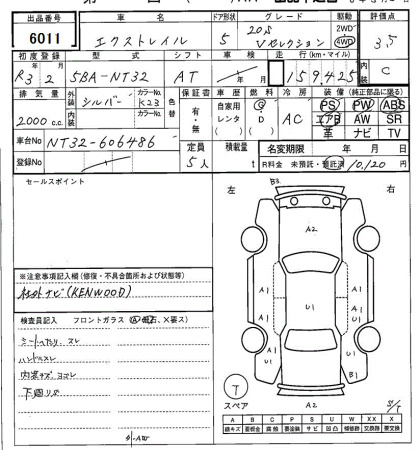 出品番号 車名 ドア形状 グレード 駆動 評価点
6011 エクストレイル 5 20S Vセレクション 2WD 4WD 3.5
初度登録 型式 シフト 車検 走行(km・マイル) 内装
R3 2 5BA-NT32 AT 159,425 C
排気量 外装 シルバー カラーNo. K23 色替 保証書 車歴 燃料 冷房 装備(純正部品に限る)
2000 c.c. 内装 カラーNo. 有・無 自家用 レンタ G D AC PS PW ABS
エアB AW SR
革 ナビ TV
車台No NT32-606486 定員 積載量 名変期限 年 月 日
登録No 5人 t R料金 未預託・預託済 10,120 円
セールスポイント 左 右
B3
A2
※注意事項記入欄(修復・不具合箇所および状態等)
社外ナビ(KENWOOD)
A1 A1 U1 A1 A1
検査員記入 フロントガラス
U1 U1 U1 B1
シートへたり、スレ
ハンドルスレ
内装キズ、ヨゴレ
下廻りサビ
T
スペア
A2
S/T
A B C P S U W X XX